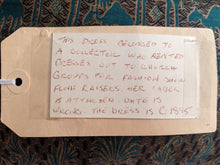 THIS DRESS BELONGED TO
A COLLECTOR WHO RENTED
DRESSES OUT TO CHURCH
GROUPS FOR FASHION SHOW
FUND RAISERS. HER LABEL
IS ATTACHED. DATE IS
WRONG. THE DRESS IS C 1845